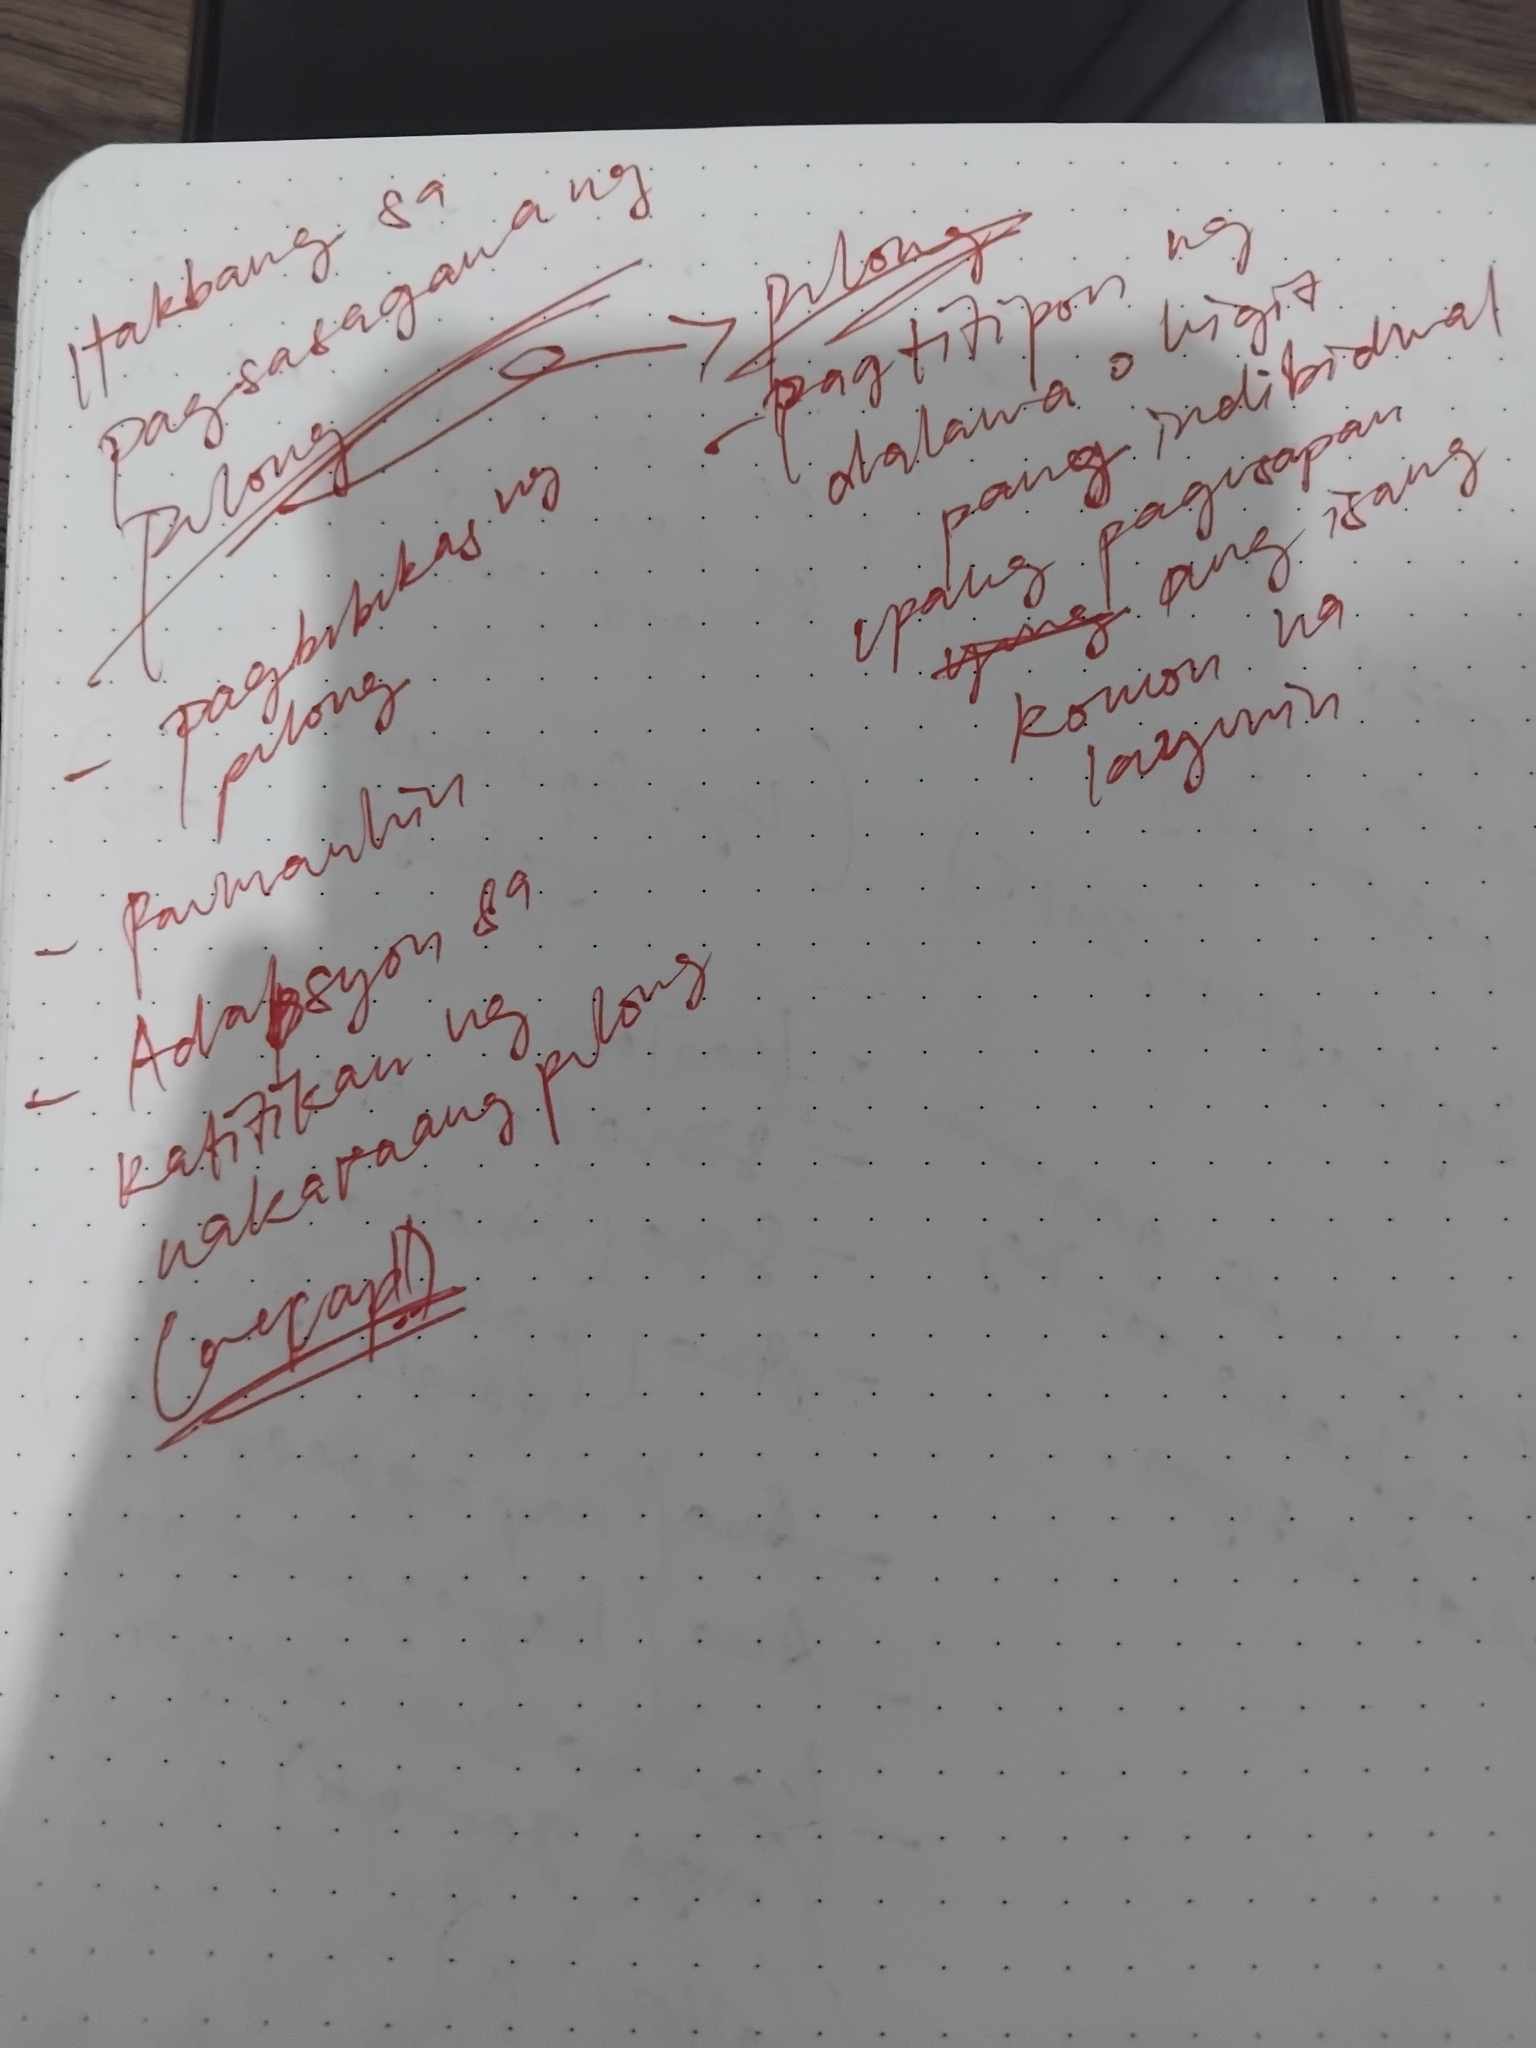 Hakbang sa
pagsasaganang
pulong
- pagbibikas ng
pulong
- paumanhin
- Adapsyon sa
katitikan ng
nakaraang pulong
pulong
- pagtitipon ng
dalawa o higit
pang indibidwal
upang pagusapan
ang isang
komon na
layunin